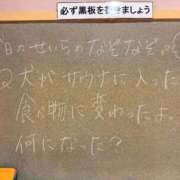 必ず黒板を書きましょう
日のせいらのなぞなぞ
Q犬がサウナに入った
食べ物に変わったよ。
何になった？